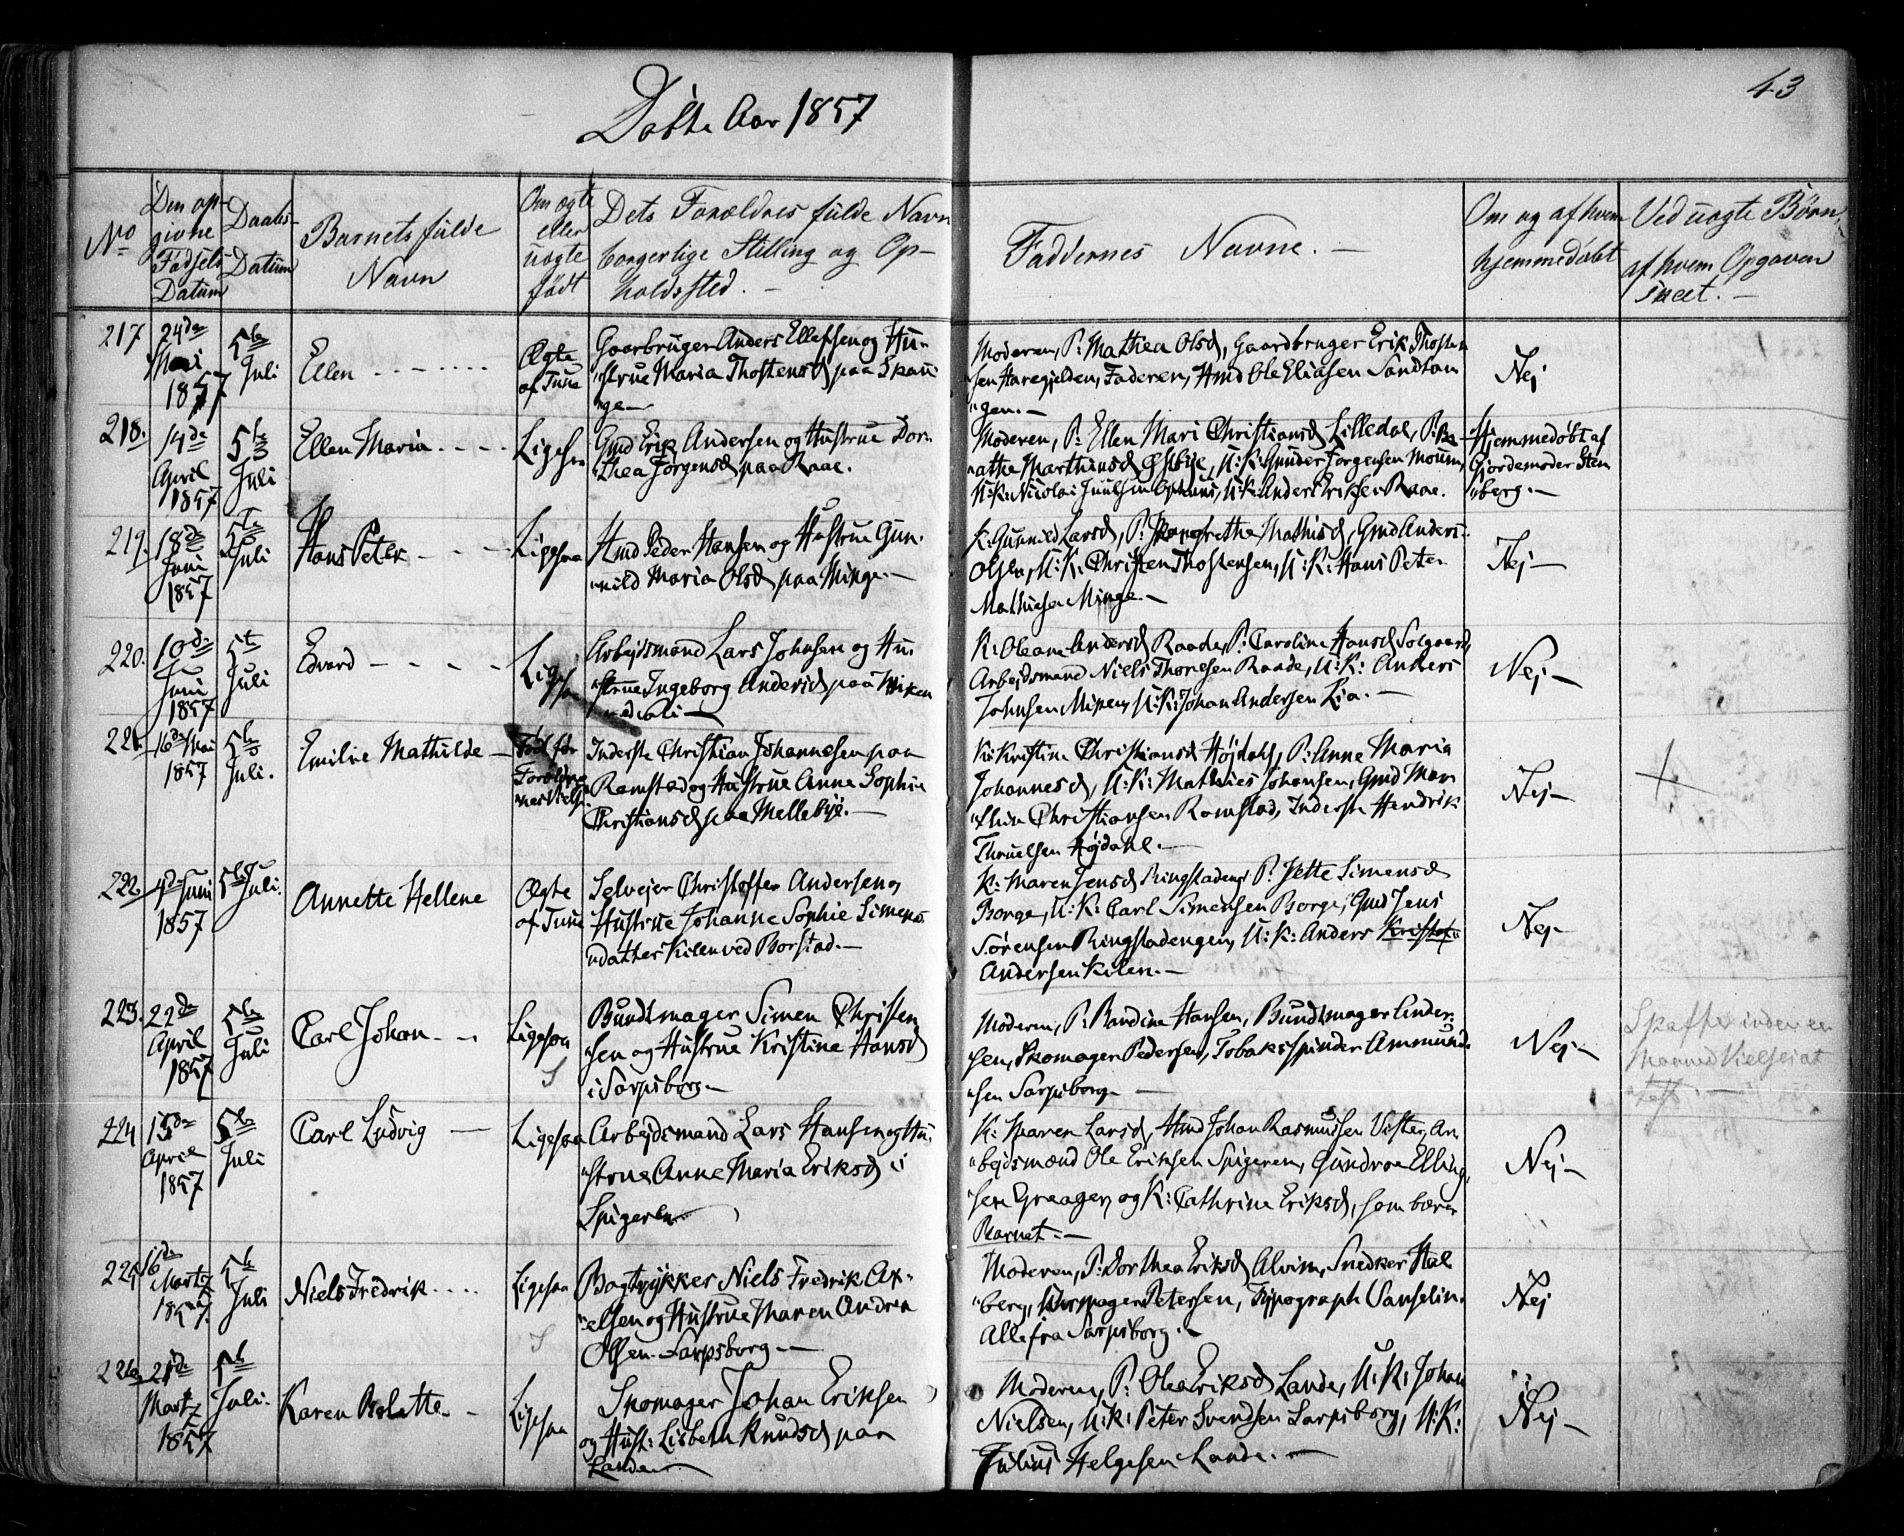 Døbte Aar 1857
43
No
Den op-
givne
Fødsels
Datum
Daabs-
Datum
Barnets fulde
Navn
Om ægte
eller
uægte
født
Dets Forældres fulde Navn
borgerlige Stilling og Op-
holdssted. -
Faddernes Navne. -
Om og af hvem
hjemmedøbt
Ved uægte Børn,
af hvem Opgaven
skeet. -
217
24de
Mai
1857
5te
Juli
Ellen
Ægte
af Tune
Gaarbruger Anders Ellefsen og Hu-
strue Maria Thostensd paa
Moderen, P: Mathea Olsd, Gaardbruger Erik Thosten
sen Haregjelden, Faderen, Hmd Ole Eliasen Sandtan
gen. -
Nej
218.
14de
April
1857
5te
Juli
Ellen Maria
Ligesaa
Gmd Erik Andersen og Hustrue Dor-
thea Jørgensd paa Raae.
Moderen, P: Ellen Mari Christiansd Lilledal, P:
Marthinsd Østbye, U:K: Gunder Jørgensen Moum,
U:K: Nicolai Juulsen, U:K: Anders Eriksen Raae.
Hjemmedøbt af
Gjordemoder Sten
berg. -
219.
18de
Juni
1857
5te
Juli
Hans Peter
Ligesaa
Hmd Peder Hansen og Hustrue Gun-
nild Maria Olsd paa Minge. -
K: Gunnild Larsd, P: Mathisd, Gmd Anders
U:K: Christen Thostensen, U:K: Hans Peter
Mathisen Minge. -
Nej -
220.
10de
Juni
1857
5te
Juli
Edvard
Ligesaa
Arbejdsmand Lars Johnsen og Hu-
strue Ingeborg Andersd paa
K: Oleane Andersd Raade, P: Caroline Hansd Solgaard,
Arbejdsmand Niels Thoresen Raade, U:K: Anders
Johnsen, U:K: Johan Andersen Lia. -
Nej -
221.
16de Mai
1857
5te
Juli.
Emilie Mathilde -
Født før
Forældre
nes Vielse
Inderste Christian Johannesen paa
Ramstad og Hustrue Anne Sophie
Christiansd paa Mellebye. -
K: Kristine Christiansd Højdahl, P: Anne Maria
Johannesd, U:K: Mathies Johansen, Gmd Mar
thin Christiansen Ramstad, Inderste Hendrik
Thruelsen Højdahl. -
Nej -
222.
Juni
1857
5te Juli.
Annette Hellene
Ægte
af Tune
Selvejer Christoffer Andersen og
Hustrue Johanne Sophie Simens
datter Kilen ved Borstad. -
K: Maren Jensd Ringstadengen, P: Jette Simensd
Borge, U:K: Carl Simensen Borge, Gmd Jens
Sørensen Ringstadengen, U:K: Anders
Andersen Kilen. -
Nej -
223.
22de
April
1857
5te
Juli
Carl Johan
Ligesaa
S
Bundtmager Simen Christen
sen og Hustrue Kristine Hansd
i Sarpsborg -
Moderen, P: Randine Hansen, Bundtmager Ander-
sen, Skomager Pedersen, Tobaksspinder Ammund-
sen Sarpsborg -
Nej -
224
15de
April
1857
5te
Juli
Carl Ludvig -
Ligesaa
Arbejdsmand Lars Hansen og Hu-
strue Anne Maria Eriksd i
Spigeren
K: Maren Larsd, Hmd Johan Rasmussen Vister, Ar-
bejdsmænd Ole Eriksen Spigeren, Gundroe Elling
sen Graager, og K: Cathrine Eriksd, som bærer
Barnet. -
Nej -
225
16de
Marts
1857.
5te
Juli
Niels Fredrik
Ligesaa
S
Bogtrykker Niels Fredrik Ax-
elsen og Hustrue Maren Andrea
Olsen Sarpsborg -
Moderen, P: Dorthea Eriksd Alvim, Snedker Hal
berg, Skomager Petersen, Typograph Sanselin.
Alle fra Sarpsborg. -
Nej
226.
21de
Marts
1857
5te
Juli.
Karen
Ligesaa
Skomager Johan Eriksen
og Hust: Lisbeth Knudsd paa
Lande -
Moderen, P: Olea Eriksd Lande, U:K: Johan
Nielsen, U:K: Peter Svendsen Sarpsborg, U:K:
Julius Helgesen Lande. -
Nej -